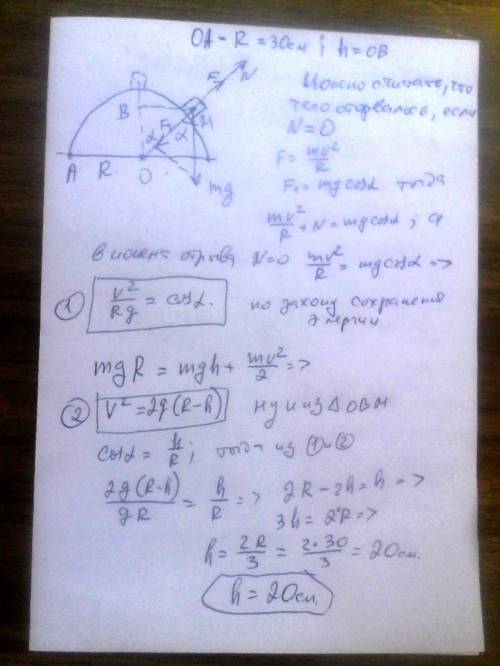 OA = R = 30см ; h = OB
Можно считать, что
тело оторвалось, если
N = 0
F = mv²/R
F₁ = mg cosα тогда
mv²/R + N = mg cosα ; а
в момент отрыва N=0 mv²/R = mg cosα =>
① v²/Rg = cosα. по закону сохранения
энергии
mgR = mgh + mv²/2 =>
② V² = 2g(R-h) ну и из △ OBM
cosα = h/R ; тогда из ① и ②
2g(R-h)/gR = h/R => 2R - 2h = h =>
3h = 2R =>
h = 2R/3 = 2·30/3 = 20см.
h = 20см.
B
F
N
M
α
α
F₁
A
R
O
mg